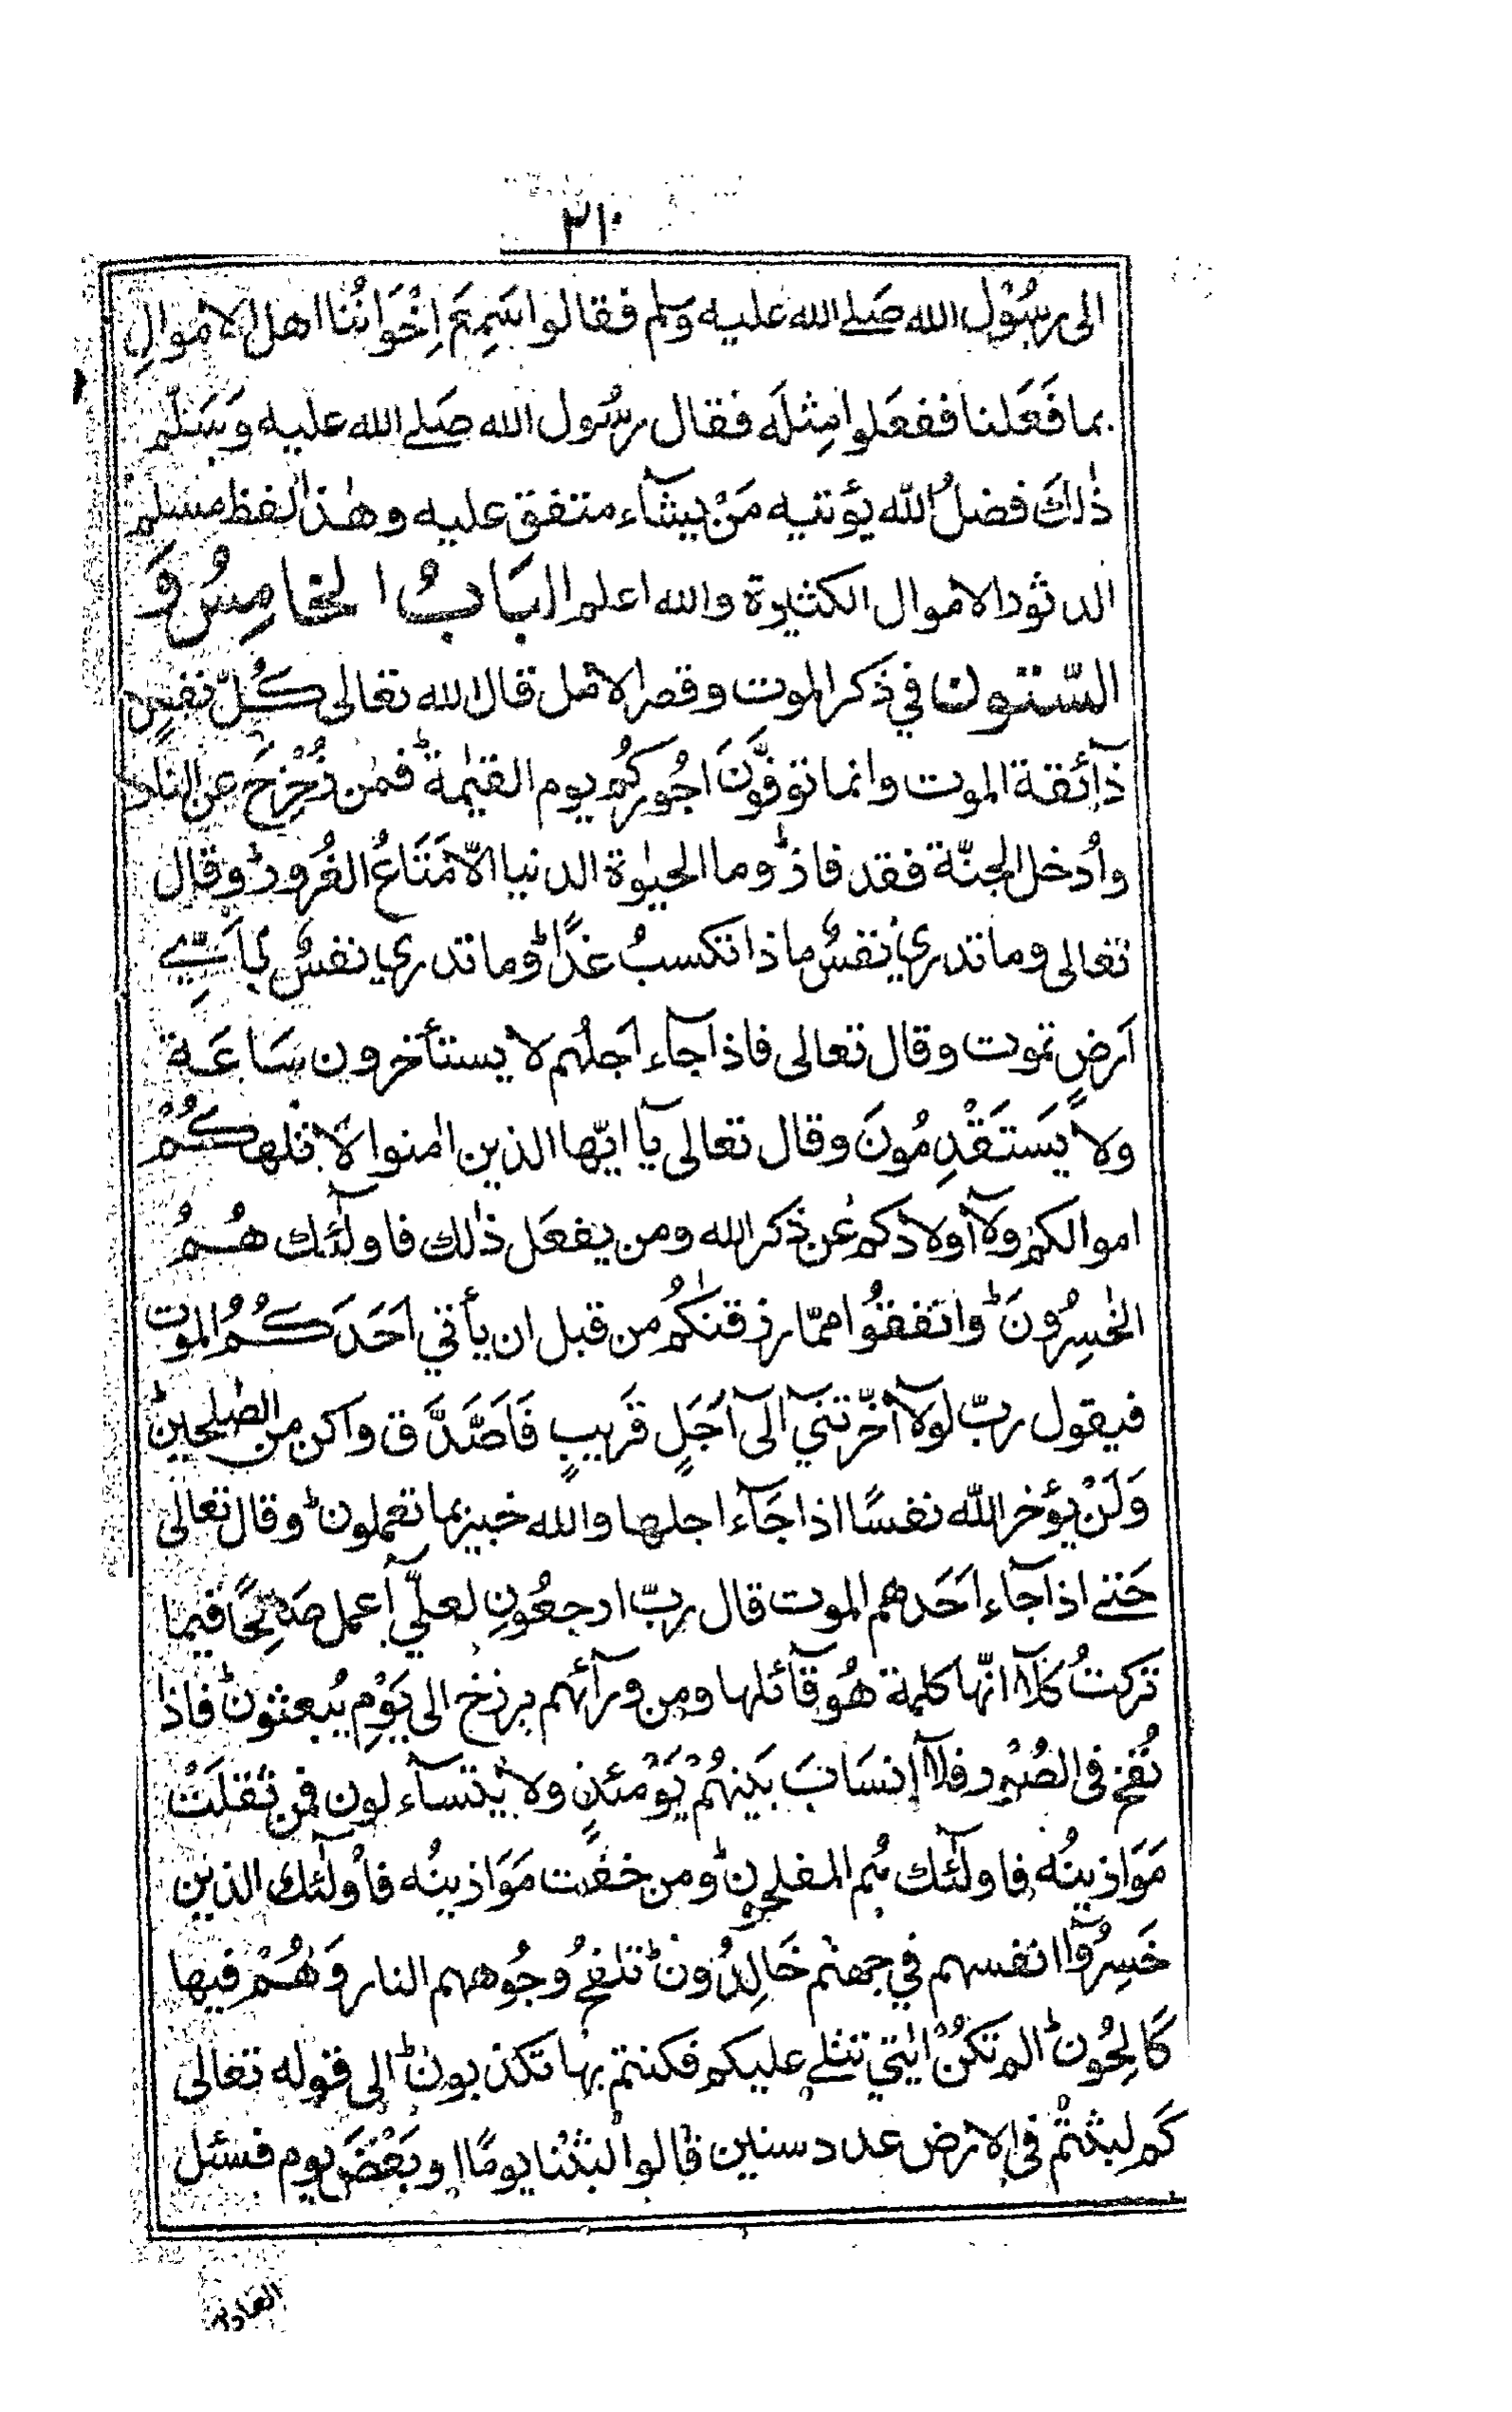 ٣١٠
الى رسُوْل الله صَلے الله عليه وسلم فقالوا سَمِعَ اِخْوَانُنا اهل الاموالِ
بما فَعَلنا ففعَلوا مِثلَه فقال رسُول الله صَلے الله عليه وَسَلّم
ذٰلكَ فضلُ اللّٰه يؤتيه مَنْ يشآء متفق عليه وهٰذا لفظ مسلم
الدثور الاموال الكثيرة والله اعلم البَابُ الخامِسُ وَ
السّتون في ذكر الموت وقصر الامل قال الله تعالى كُلّ نفسٍ
ذآئقة الموت وانما توفَّوْنَ اجُوركُم يوم القيٰمة ط فمن زُحْزِحَ عن النار
واُدخل الجنّة فقد فاز ط وما الحيٰوة الدنيا الّا مَتَاعُ الغُرور ط وقال
تعالى وما تدري نفسٌ ماذا تكسبُ غدًا ط وما تدري نفسٌ بِاَيِّ
اَرضٍ تموت وقال تعالى فاذا جآء اَجلُهم لا يستأخرون سَاعَة
ولا يَستَقْدِمُونَ وقال تعالى يآ ايّها الذين اٰمنوا لا تلهكُمْ
اموالكم ولآ اولادكم عن ذكر الله ومن يفعَل ذٰلك فاولٰٓئك هُمُ
الخٰسِرُونَ ط وانفقُوا ممّا رزقنٰكُم من قبل ان يأتي اَحَدَكُمُ الموت
فيقول ربّ لولآ اَخّرتني الىٓ اَجَلٍ قَريبٍ فَاَصَّدَّق واكن من الصّٰلحين ط
وَلَنْ يؤخر اللّٰه نفسًا اذا جَآء اجلها والله خبيرٌ بما تعملون ط وقال تعالى
حَتے اذا جآء اَحَدهم الموت قال ربّ ارجعُونِ لعلّيٓ اَعمل صَالِحًا فيما
تركتُ كلّآ انّها كلمة هُو قآئلها ومن ورآئهم برزخ الى يَوْمِ يُبعثون ط فاذا
نُفخ فى الصُّوْر فلآ اَنسَابَ بَينهُمْ يَوْمئذٍ ولا يتسآءلون فمن ثقلَتْ
مَوَازينُه فاولٰٓئك هُم المفلحون ط ومن خفّت مَوَازينُه فاُولٰٓئك الذين
خَسِرُوٓا انفسهم في جهنّم خَالِدُونَ ط تلفحُ وجُوههم النار وَهُمْ فيها
كَالِحُون ط الم تكُنْ اٰيٰتي تتلے عليكم فكنتم بها تكذبون ط الى قوله تعالى
كَم لبثتُمْ فى الارض عدد سنين قالوا لبثْنا يومًا او بَعْضَ يوم فسئل
العادين